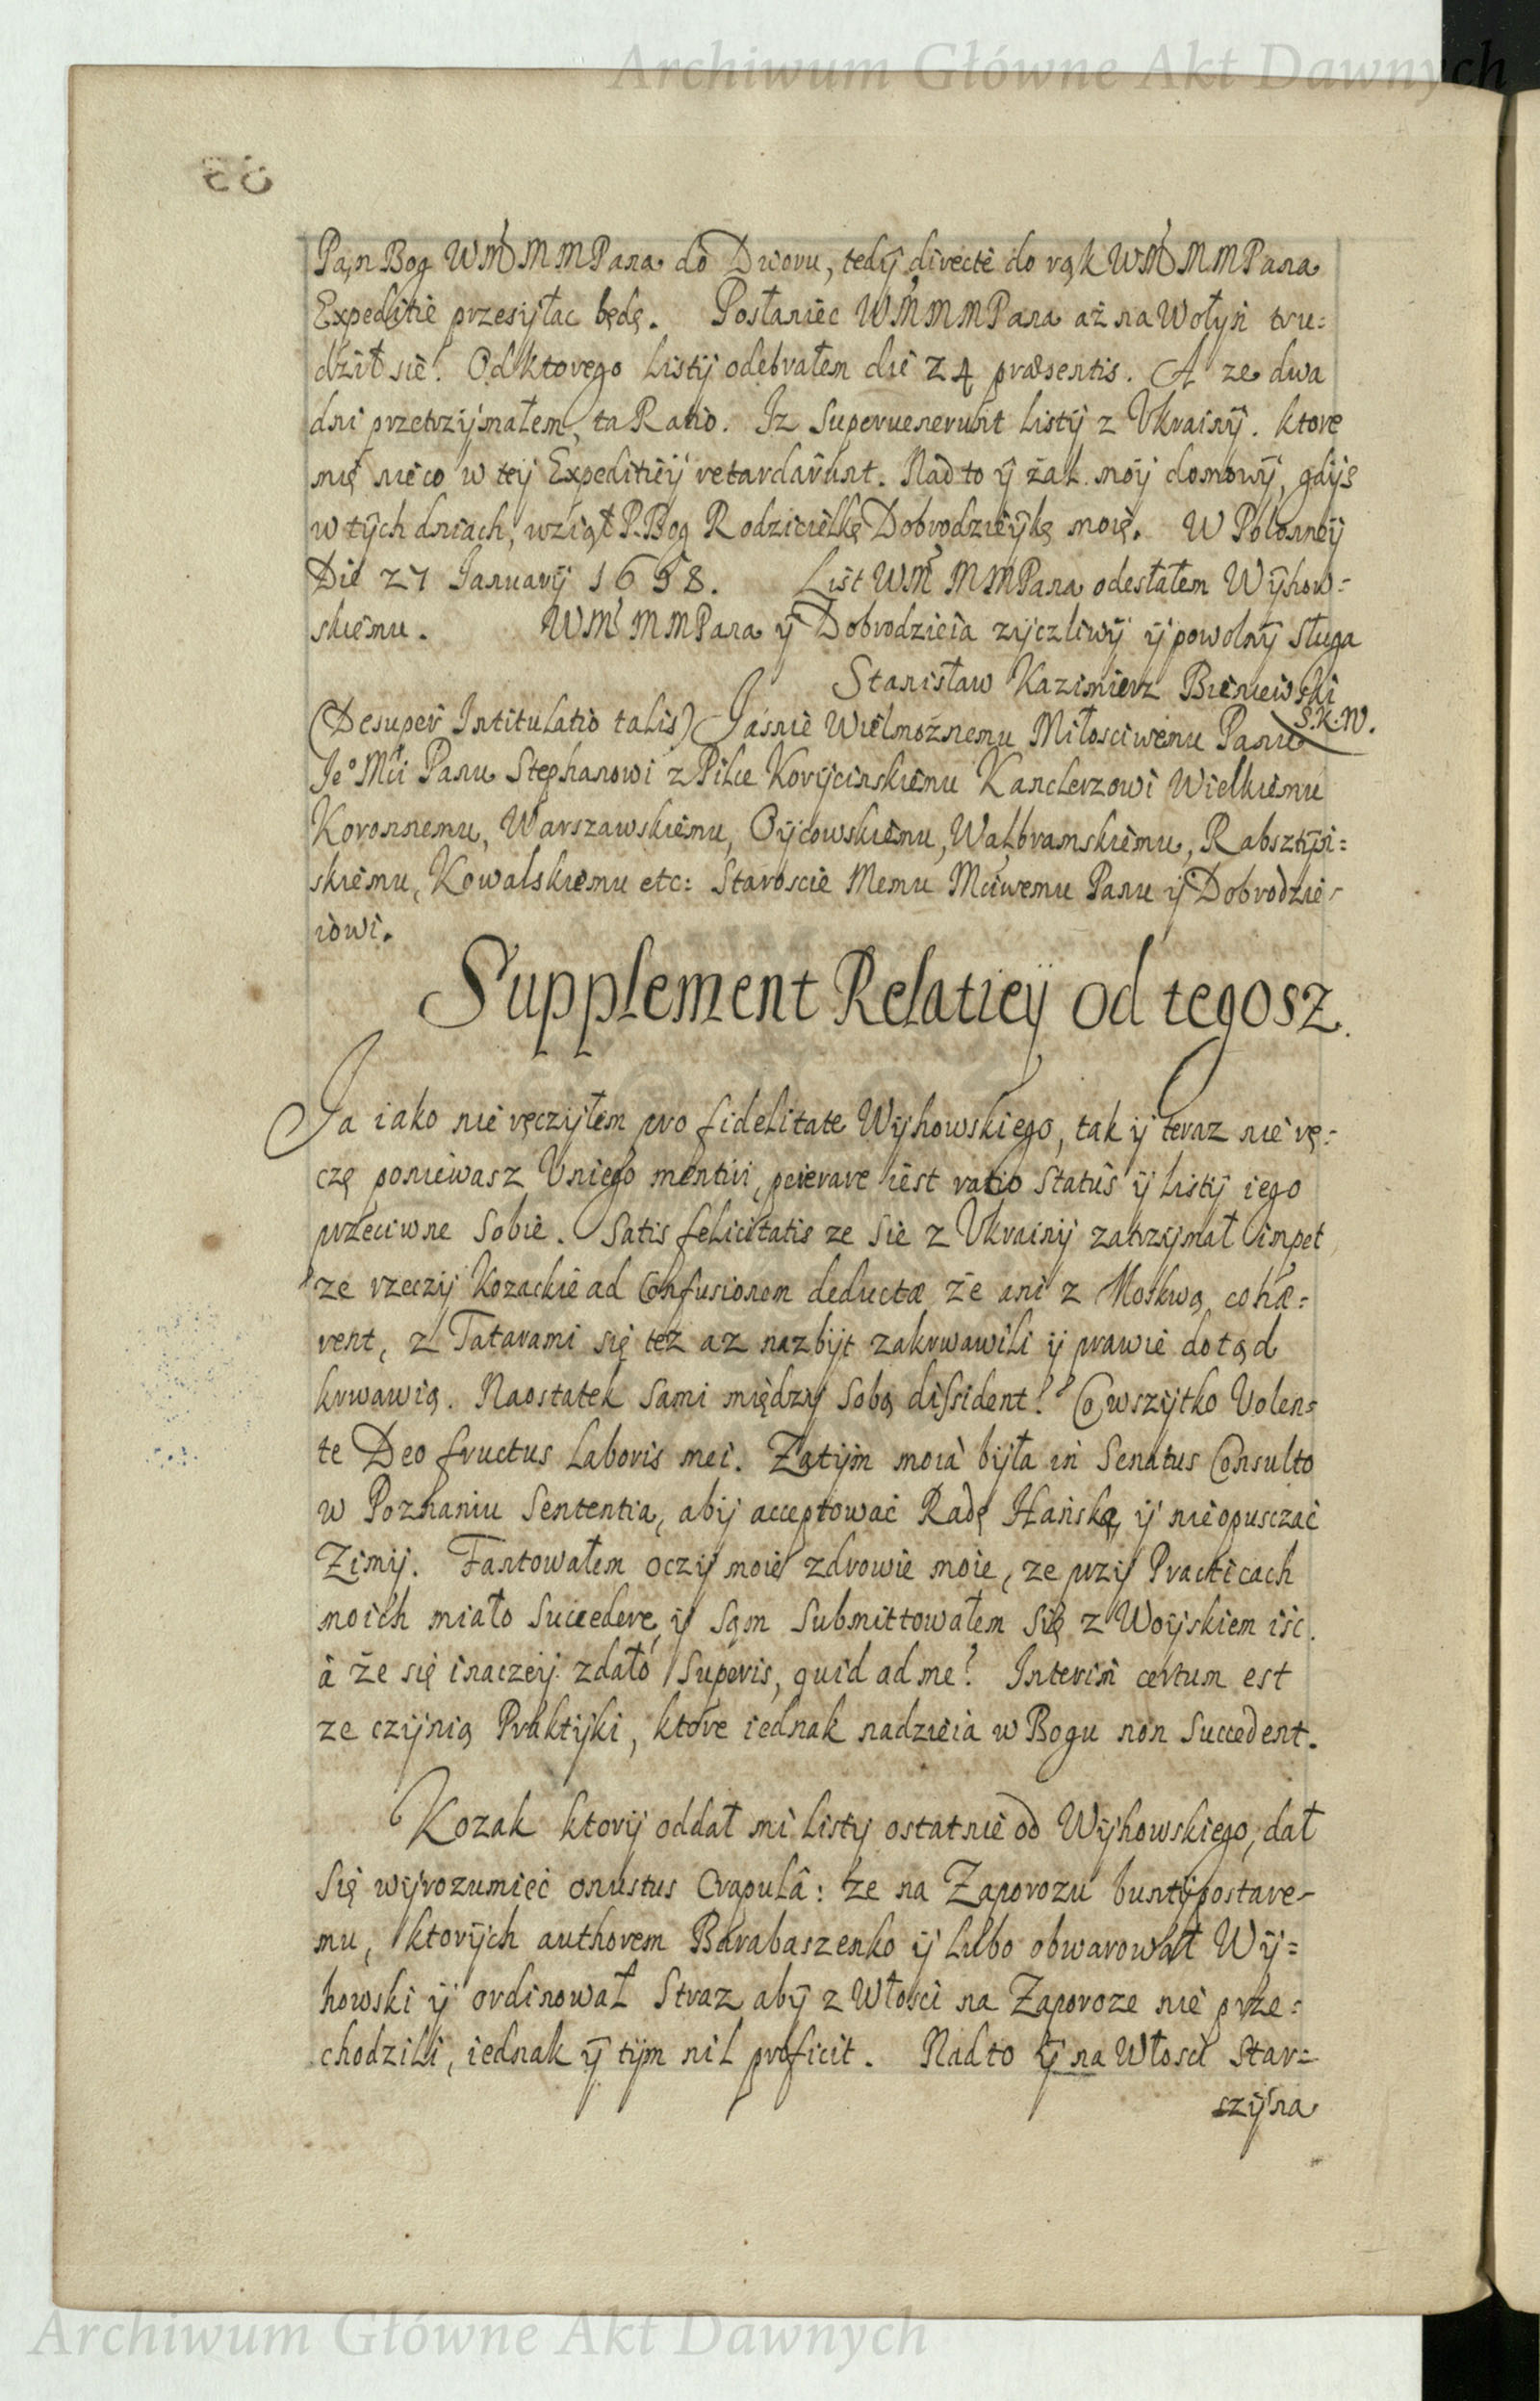 Archiwum Główne Akt Dawnych
Pąn Bog WM MMPana do Dworu, tedÿ directe do rąk WM MMPana
Expeditie przesÿłac będę. Posłaniec WMMMPana aż na Wołÿn tru=
dził sie. Od ktorego listÿ odebrałem die 24 præsentis. A ze dwa
dni przetrzÿmałem, ta Ratio. Iz superuenerunt listÿ z Vkrainÿ. ktore
mię nieco w teÿ Expeditieÿ retardârunt. Nad to ÿ żal moÿ domowÿ, gdÿs
w tÿch dniach, wziął P. Bog Rodzicielkę Dobrodzieÿkę moię. W Polonneÿ
Die 27 Januarÿ 1658. List WM MMPana odesłałem Wÿhow=
skiemu. WM MMPana ÿ Dobrodzieia zÿczliwÿ ÿ powolnÿ sługa
Stanisław Kazimierz Bieniewski
S.K.W.
(Desuper Intitulatio talis) Jasnie Wielmożnemu Miłosciwemu Panu
Je° Mći Panu Stephanowi z Pilce Korÿcinskiemu Kanclerzowi Wielkiemu
Koronnemu, Warszawskiemu, Oÿcowskiemu, Wąlbramskiemu, Rabsztÿń=
skiemu, Kowalskiemu etc: Staroscie Memu Mciwemu Panu ÿ Dobrodzie=
iowi.
Supplement Relatieÿ od tegosz.
Ja iako nie ręczÿłem pro fidelitate Wÿhowskiego, tak ÿ teraz nie rę=
czę poniewasz Vniego mentiri, peierare iest ratio status ÿ listÿ iego
przeciwne sobie. Satis felicitatis ze sie z Vkrainÿ zatrzÿmał impet
ze rzeczÿ Kozackie ad Confusionem deductæ że ani z Moskwą cohæ=
rent, z Tatarami się tez az nazbÿt zakrwawili ÿ prawie dotąd
krwawią. Naostatek sami międzÿ sobą dissident. Co wszÿtko Volen=
te Deo fructus laboris mei. Zatÿm moia bÿła in Senatus Consulto
w Poznaniu sententia, abÿ acceptować Radę Hańską ÿ nieopusczać
Zimÿ. Fantowałem oczÿ moie zdrowie moie, ze przÿ Practicach
moich miało succedere, ÿ sąm submittowałem się z Woÿskiem iśc.
à że się inaczeÿ zdało superis, quid ad me? Interim certum est
ze czÿnią Praktÿki, ktore iednak nadzieia w Bogu non succedent.
Kozak ktorÿ oddał mi listÿ ostatnie od Wÿhowskiego, dał
się wÿrozumieć onustus Crapulâ: że na Zaporozu buntÿ postare=
mu, ktorÿch authorem Barabaszenko ÿ lubo obwarował Wÿ=
howski ÿ ordinował straz abÿ z Włosci na Zaporoze nie prze=
chodzili, iednak ÿ tÿm nil proficit. Nadto ÿ na Włosci star=
szÿna
Archiwum Główne Akt Dawnych